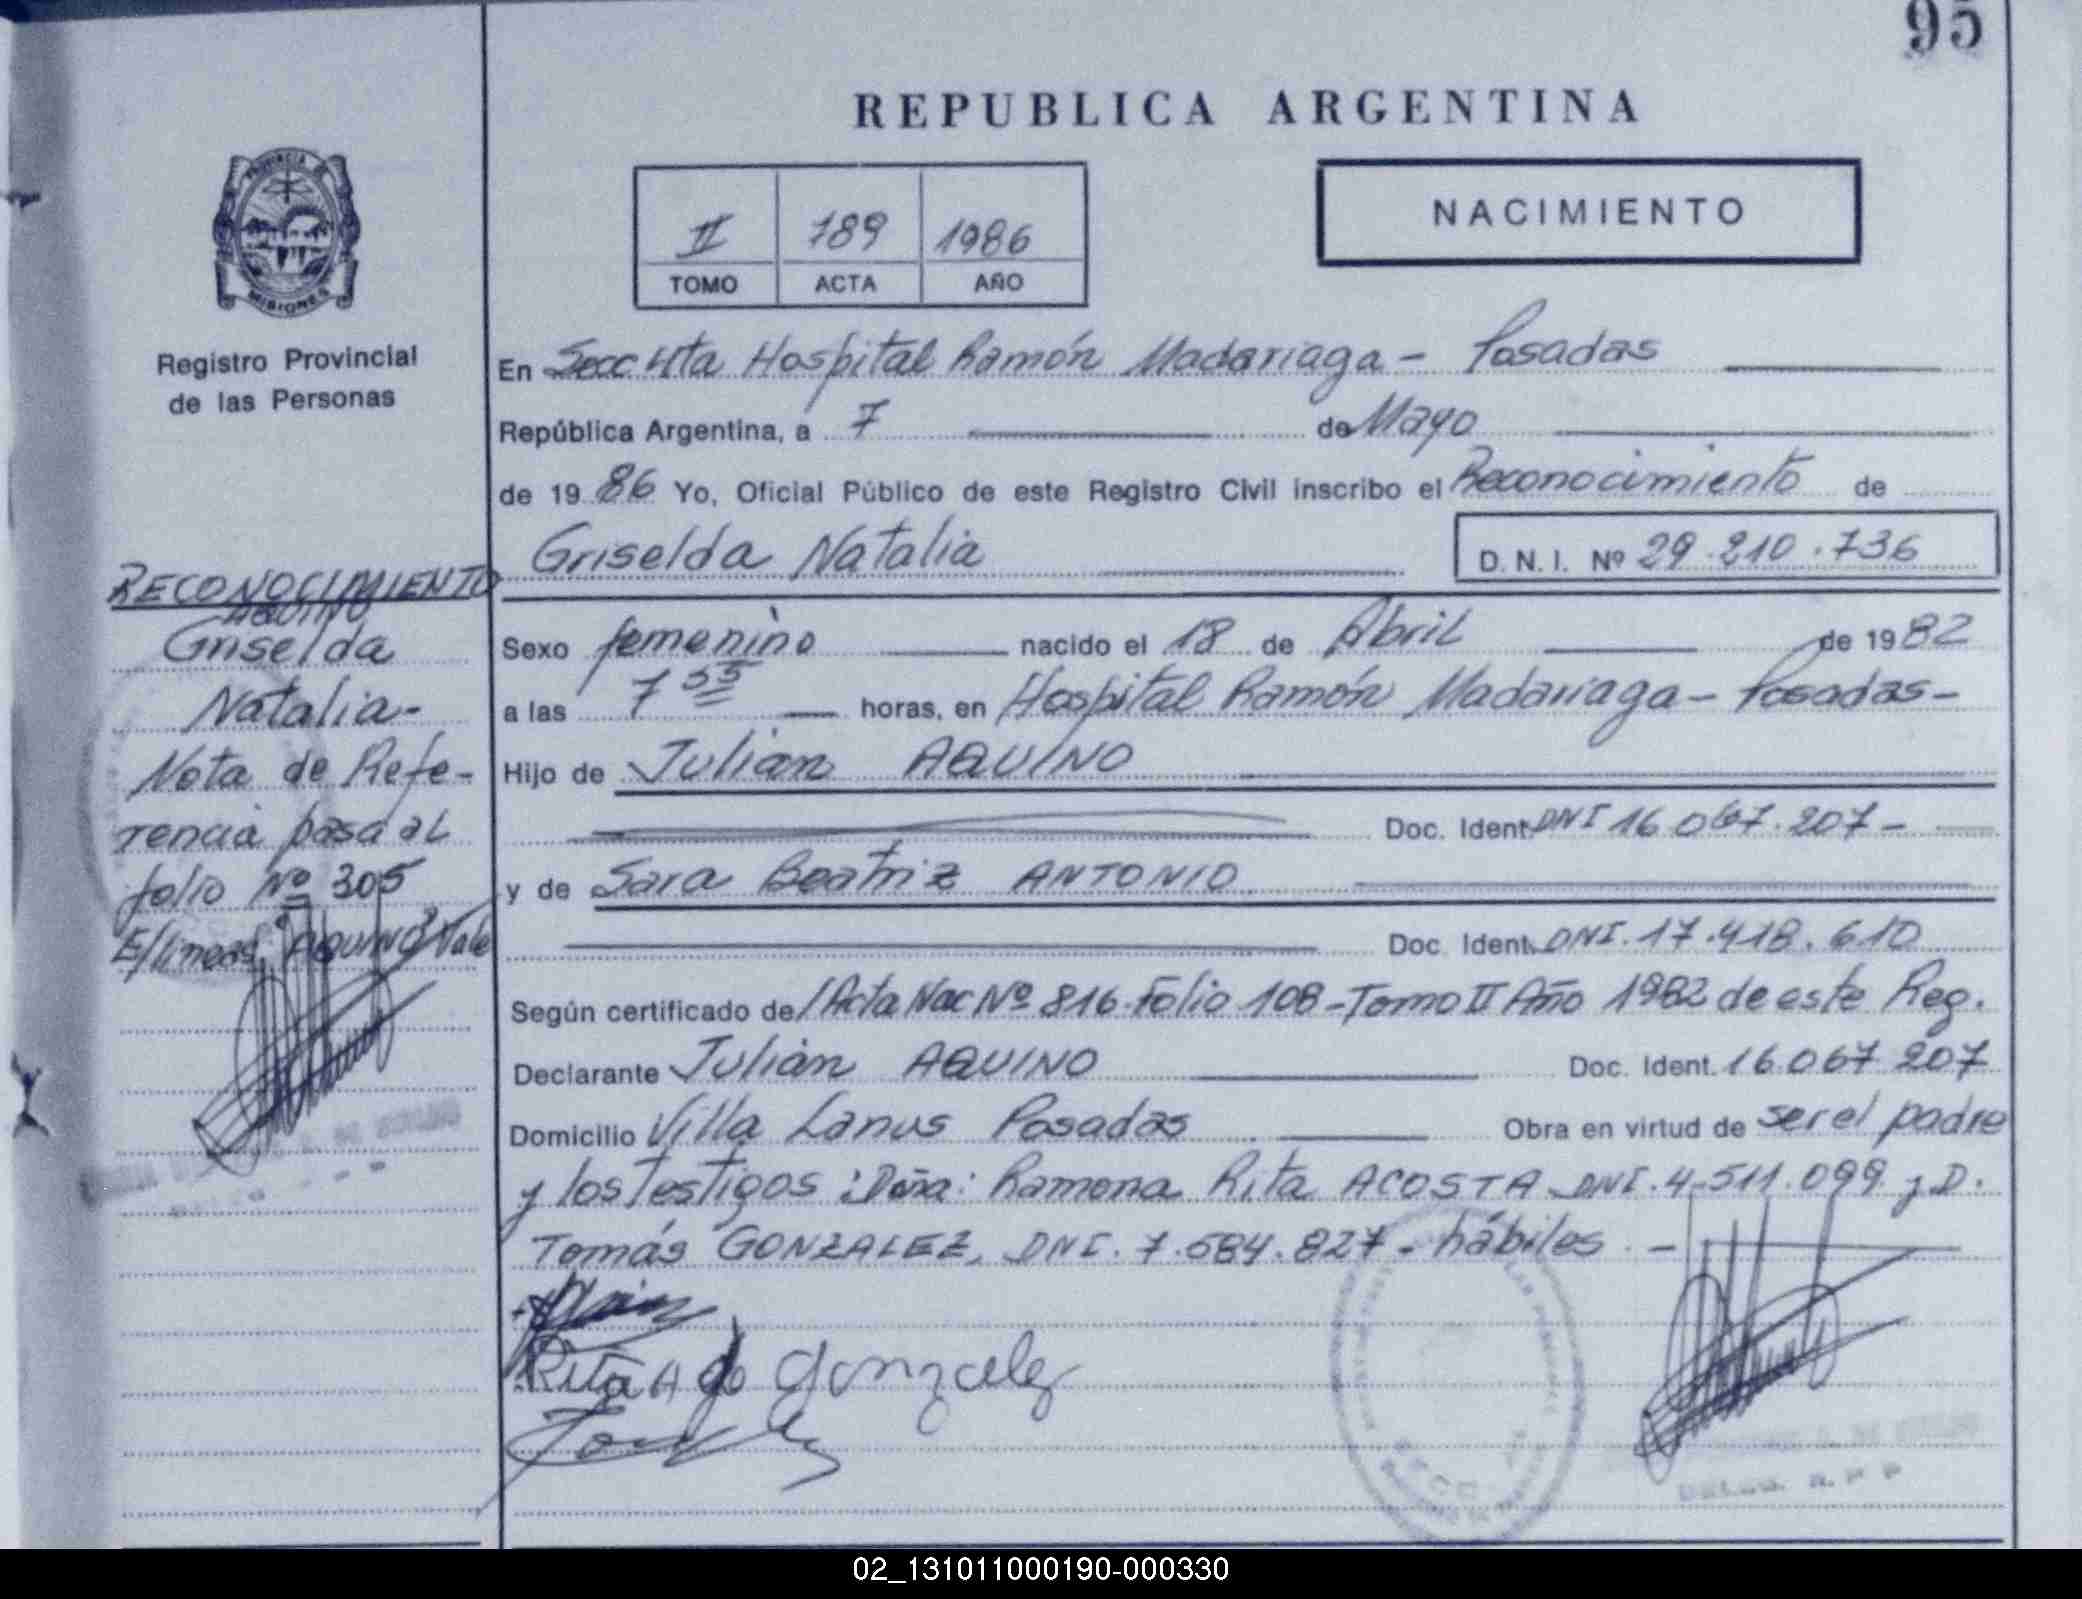 95
REPUBLICA ARGENTINA
II 189 1986
TOMO ACTA AÑO
NACIMIENTO
PROVINCIA DE
MISIONES
Registro Provincial
de las Personas
En Secc 4ta Hospital Ramón Madariaga - Posadas
República Argentina, a 7 de Mayo
de 1986 Yo, Oficial Público de este Registro Civil inscribo el Reconocimiento de
Griselda Natalia
D. N. I. Nº 29.210.736
RECONOCIMIENTO
AQUINO
Griselda
Natalia-
Nota de Refe-
rencia pasa al
folio Nº 305
E/lineas: AQUINO Vale
Sexo femenino nacido el 18 de Abril de 1982
a las 7 55 horas, en Hospital Ramón Madariaga - Posadas -
Hijo de Julián AQUINO
Doc. Ident. DNI 16.067.207 -
y de Sara Beatriz ANTONIO
Doc. Ident. DNI. 17.418.610
Según certificado de /Acta Nac Nº 816 Folio 108 - Tomo II Año 1982 de este Reg.
Declarante Julián AQUINO Doc. Ident. 16.067 207
Domicilio Villa Lanus Posadas Obra en virtud de ser el padre
y los testigos: Doña: Ramona Rita ACOSTA DNI. 4.511.099 y D.
Tomás GONZALEZ, DNI. 7.584.827 - hábiles. -
Rita A de Gonzalez
02_131011000190-000330